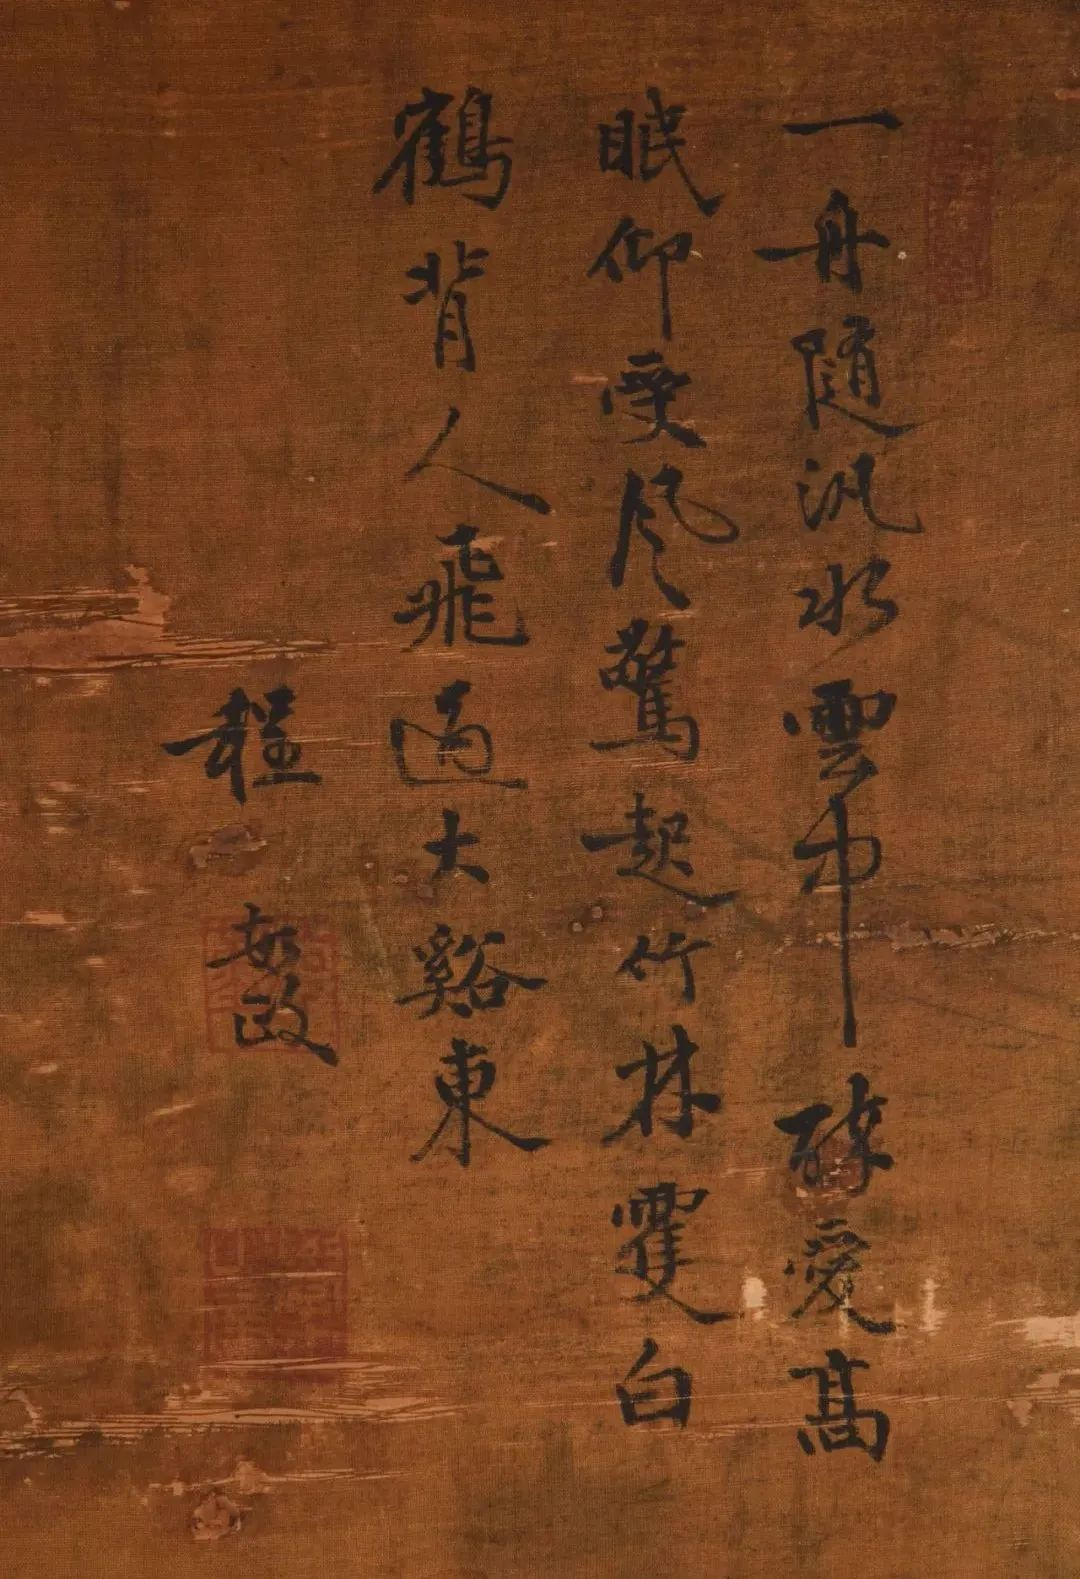 一舟随汎水雲中醉愛髙
眠仰受風驚起竹林雙白
鶴背人飛過大谿東
程敏政